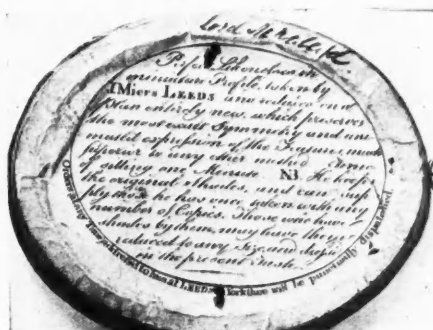 Perfect Likenesses in
miniature Profile, taken by
J Miers LEEDS and reduced on a
Plan entirely new, which preserves
the most exact Symmetry and ani-
mated expression of the Features, much
superior to any other method. Time
of sitting one Minute. NB. He keeps
the original Shades, and can sup-
ply those he has once taken with any
number of Copies. Those who have
Shades by them, may have them
reduced to any Size, and dress'd
in the present Taste.
Orders addressed to him at LEEDS Yorkshire will be punctually dispatched.
Lord